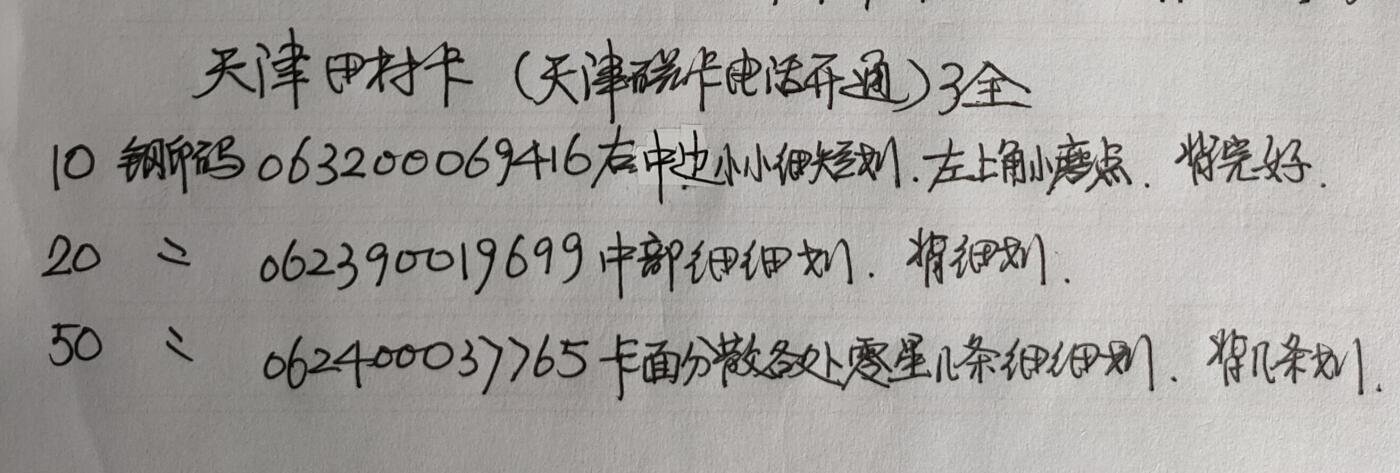 天津田村卡(天津磁卡电话开通)3全
10 钢印码 063200069416右中边小小细短划.左上角小磨点.背完好.
20 〃 062390019699中部细细划.背细划.
50 〃 062400037765卡面分散各处零星几条细细划.背几条划.